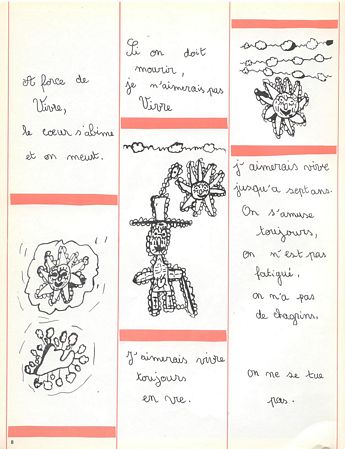 A force de
Vivre,
le cœur s'abime
et on meurt.
Si on doit
mourir,
je n'aimerais pas
Vivre
J'aimerais vivre
toujours
en vie.
j'aimerais vivre
jusqu'a sept ans.
On s'amuse
toujours,
on n'est pas
fatigué,
on n'a pas
de chagrins,
on ne se tue
pas.
8